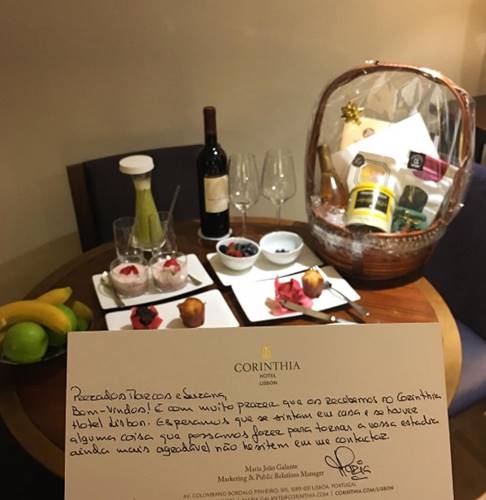 CORINTHIA
HOTEL
LISBON
Prezados Marcos e Suzana,
Bom-Vindos! É com muito prazer que os recebemos no Corinthia
Hotel Lisbon. Esperamos que se sintam em casa e se houver
alguma coisa que possamos fazer para tornar a vossa estadia
ainda mais agradável não hesitem em me contactar.
Maria João Galante
Marketing & Public Relations Manager
AV. COLUMBANO BORDALO PINHEIRO, 105, 1099-031 LISBOA, PORTUGAL
CORINTHIA.COM/LISBON